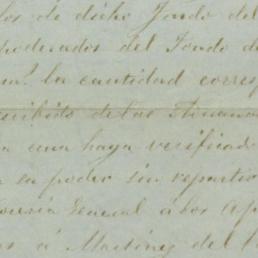 los de dicho fondo del
poderados del Fondo de
la cantidad corresp
recibido de las
una haya verificado
en su poder sin repartir
General á los Ap
á Martinez del